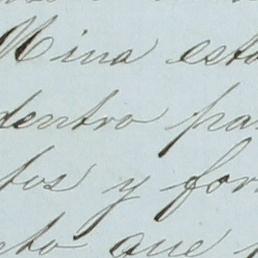 Mina esta
dentro par
tos y for
to que